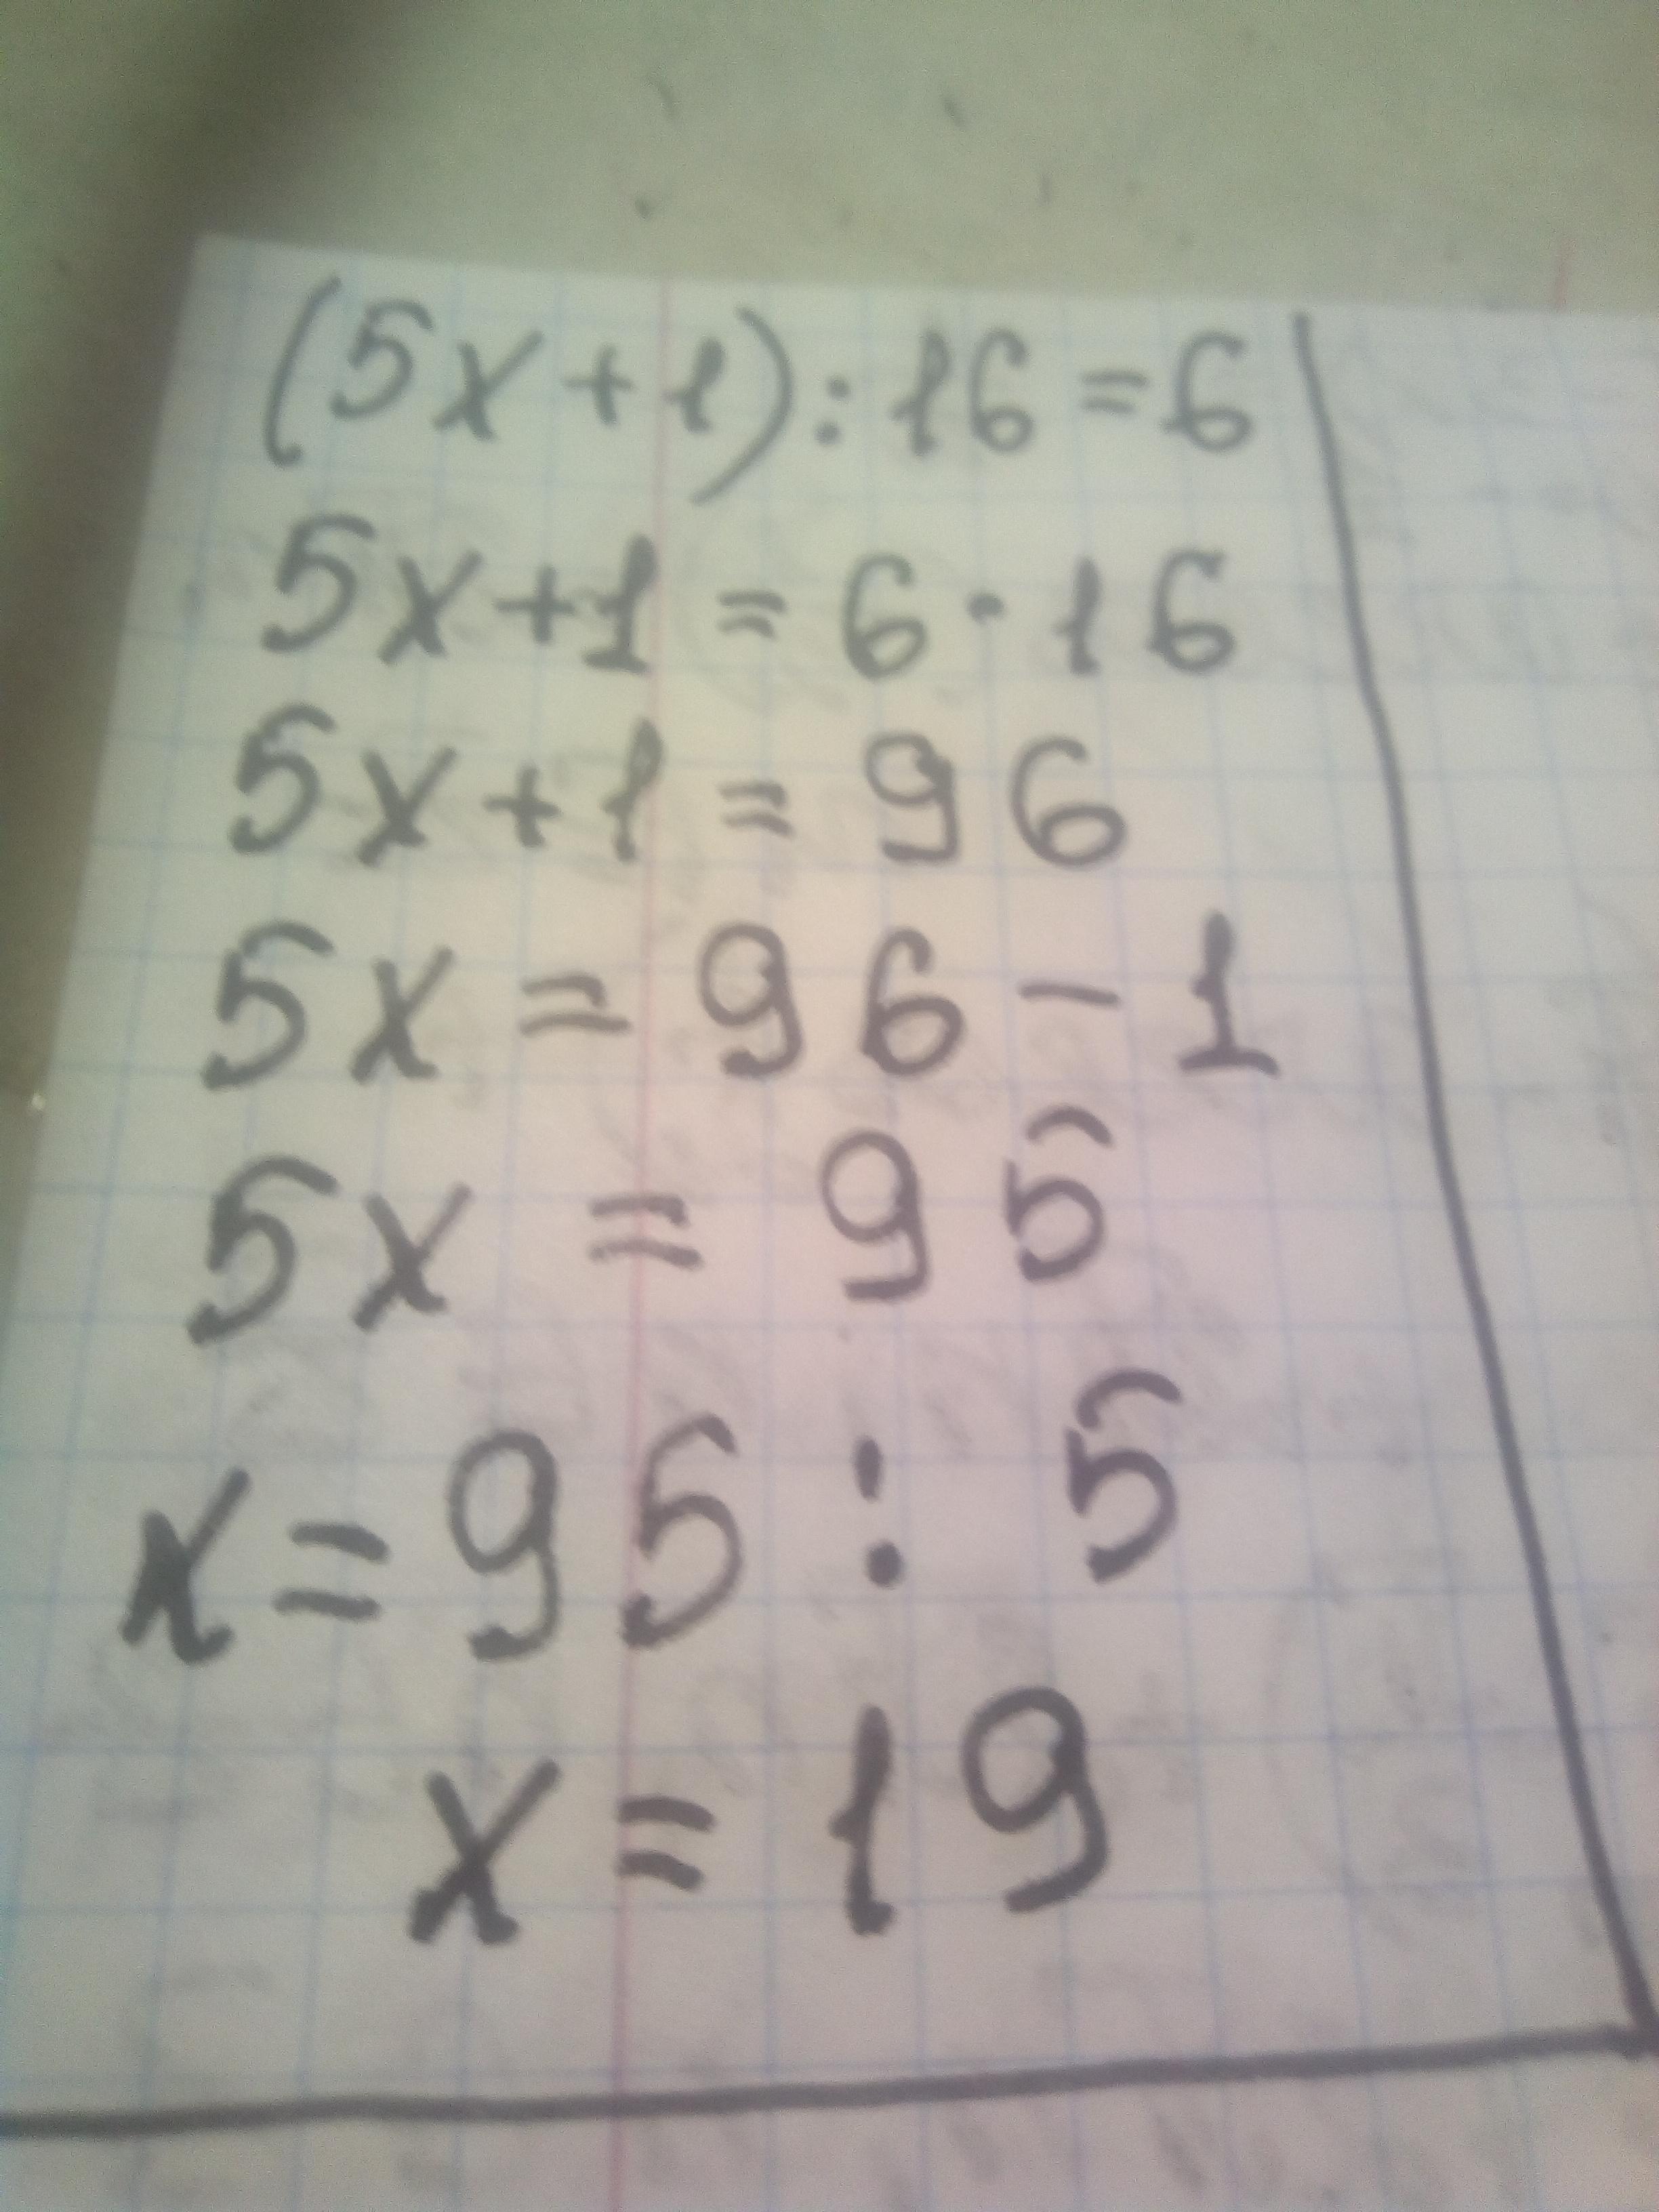 (5x+1):16=6
5x+1=6·16
5x+1=96
5x=96-1
5x=95
x=95:5
x=19